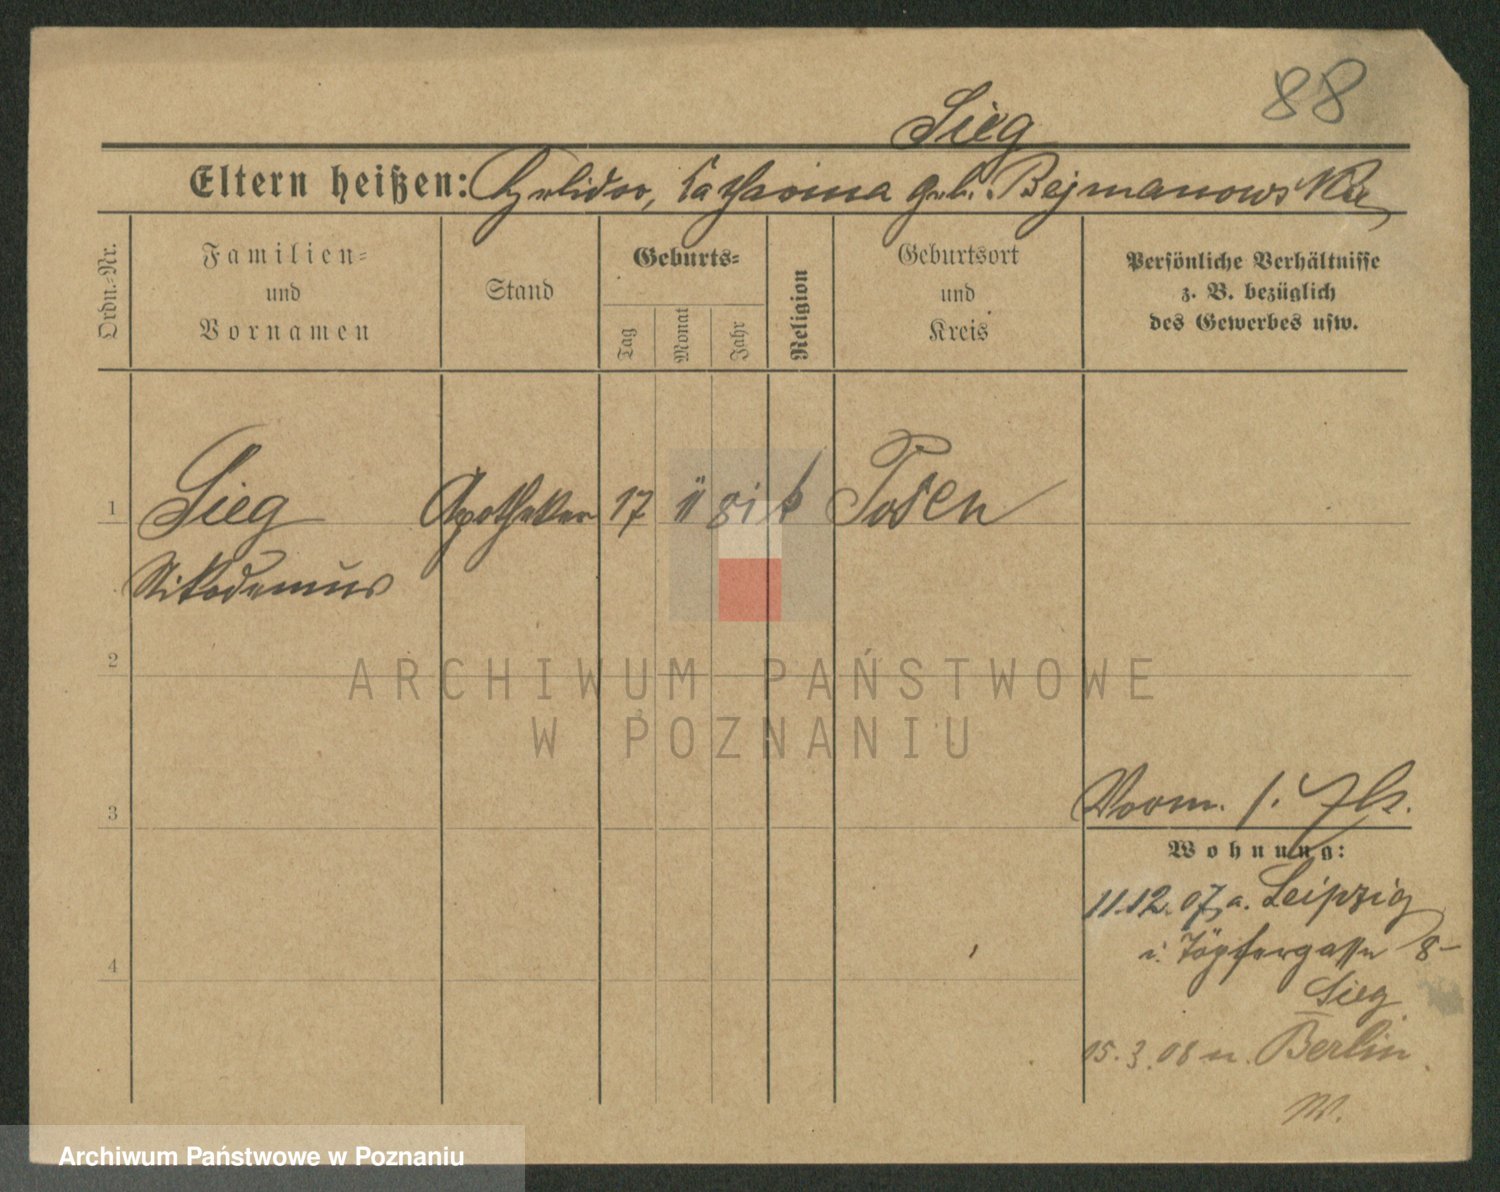 88
Sieg
Eltern heißen: Helidor, Catharina geb. Bejmanowska
Ordn.-Nr.
Familien- und Vornamen
Stand
Geburts-
Tag
Monat
Jahr
Religion
Geburtsort und Kreis
Persönliche Verhältnisse z. B. bezüglich des Gewerbes usw.
1 Sieg Apotheker 17 11 81 k Posen
Nikodemus
2
3
4
Vorm.
Wohnung:
11.12.07 a. Leipzig
i. Töpfergasse 8
Sieg
15.3.08 n. Berlin
W.
ARCHIWUM PAŃSTWOWE
W POZNANIU
Archiwum Państwowe w Poznaniu